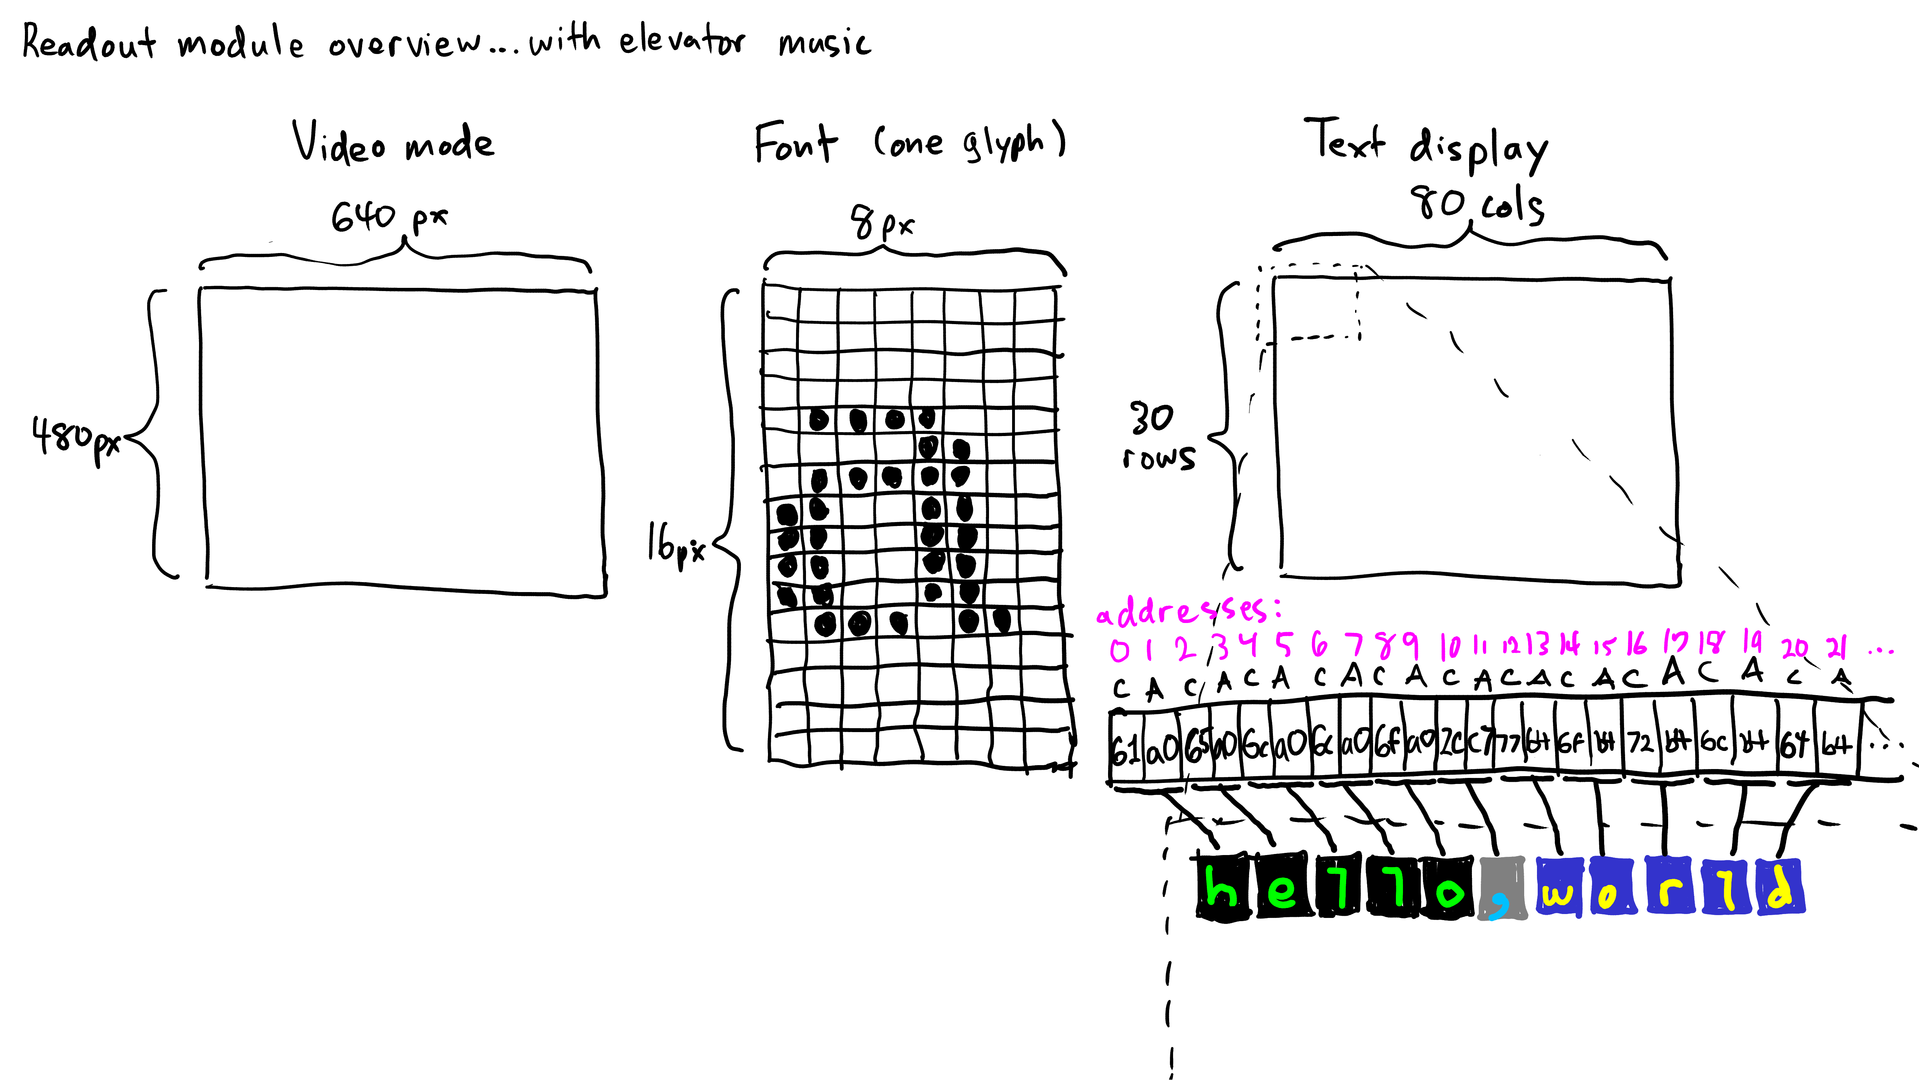 Readout module overview...with elevator music
Video mode
640 px
480px
Font (one glyph)
8px
16px
Text display
80 cols
30
rows
addresses:
0 1 2 3 4 5 6 7 8 9 10 11 12 13 14 15 16 17 18 19 20 21 ...
C A C A C A C A C A C A C A C A C A C A C A
61 a0 65 a0 6c a0 6c a0 6f a0 2c c7 77 b4 6f b4 72 b4 6c b4 64 b4 ...
hello, world